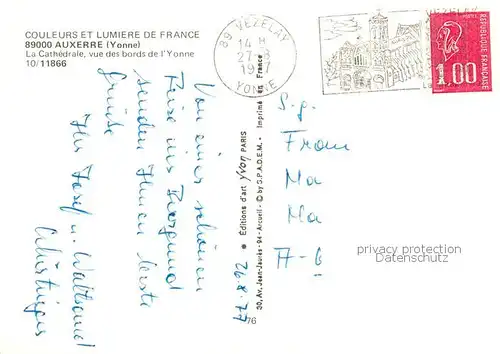 COULEURS ET LUMIERE DE FRANCE
89000 AUXERRE (Yonne)
La Cathédrale, vue des bords de l'Yonne
10/11866
89 VEZELAY
14 H
27-8
19 7
YONNE
VEZELAY
REPUBLIQUE FRANÇAISE
1,00
Von einer schönen
Reise ins Burgund
senden Ihnen beste
Grüsse
Ihr Josef u.
27.8.
Editions d'art yvon PARIS
Imprimé en France
30, Av. Jean-Jaurès-94-Arcueil - © by S.P.A.D.E.M.
76
S.g.
Frau
Ma
Ma
A-6
privacy protection
Datenschutz